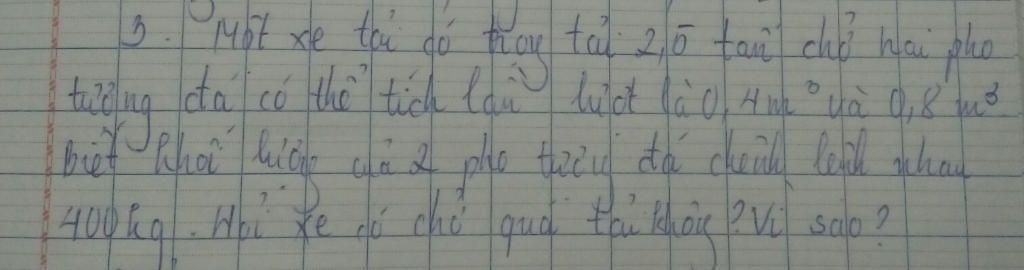 3. Một xe tải có trọng tải 2,5 tấn chở hai pho
tượng đá có thể tích lần lượt là 0,4m³ và 0,8 m³
Biết khối lượng của 2 pho tượng đá chênh lệch nhau
400kg. Hỏi xe có chở quá tải không? Vì sao?